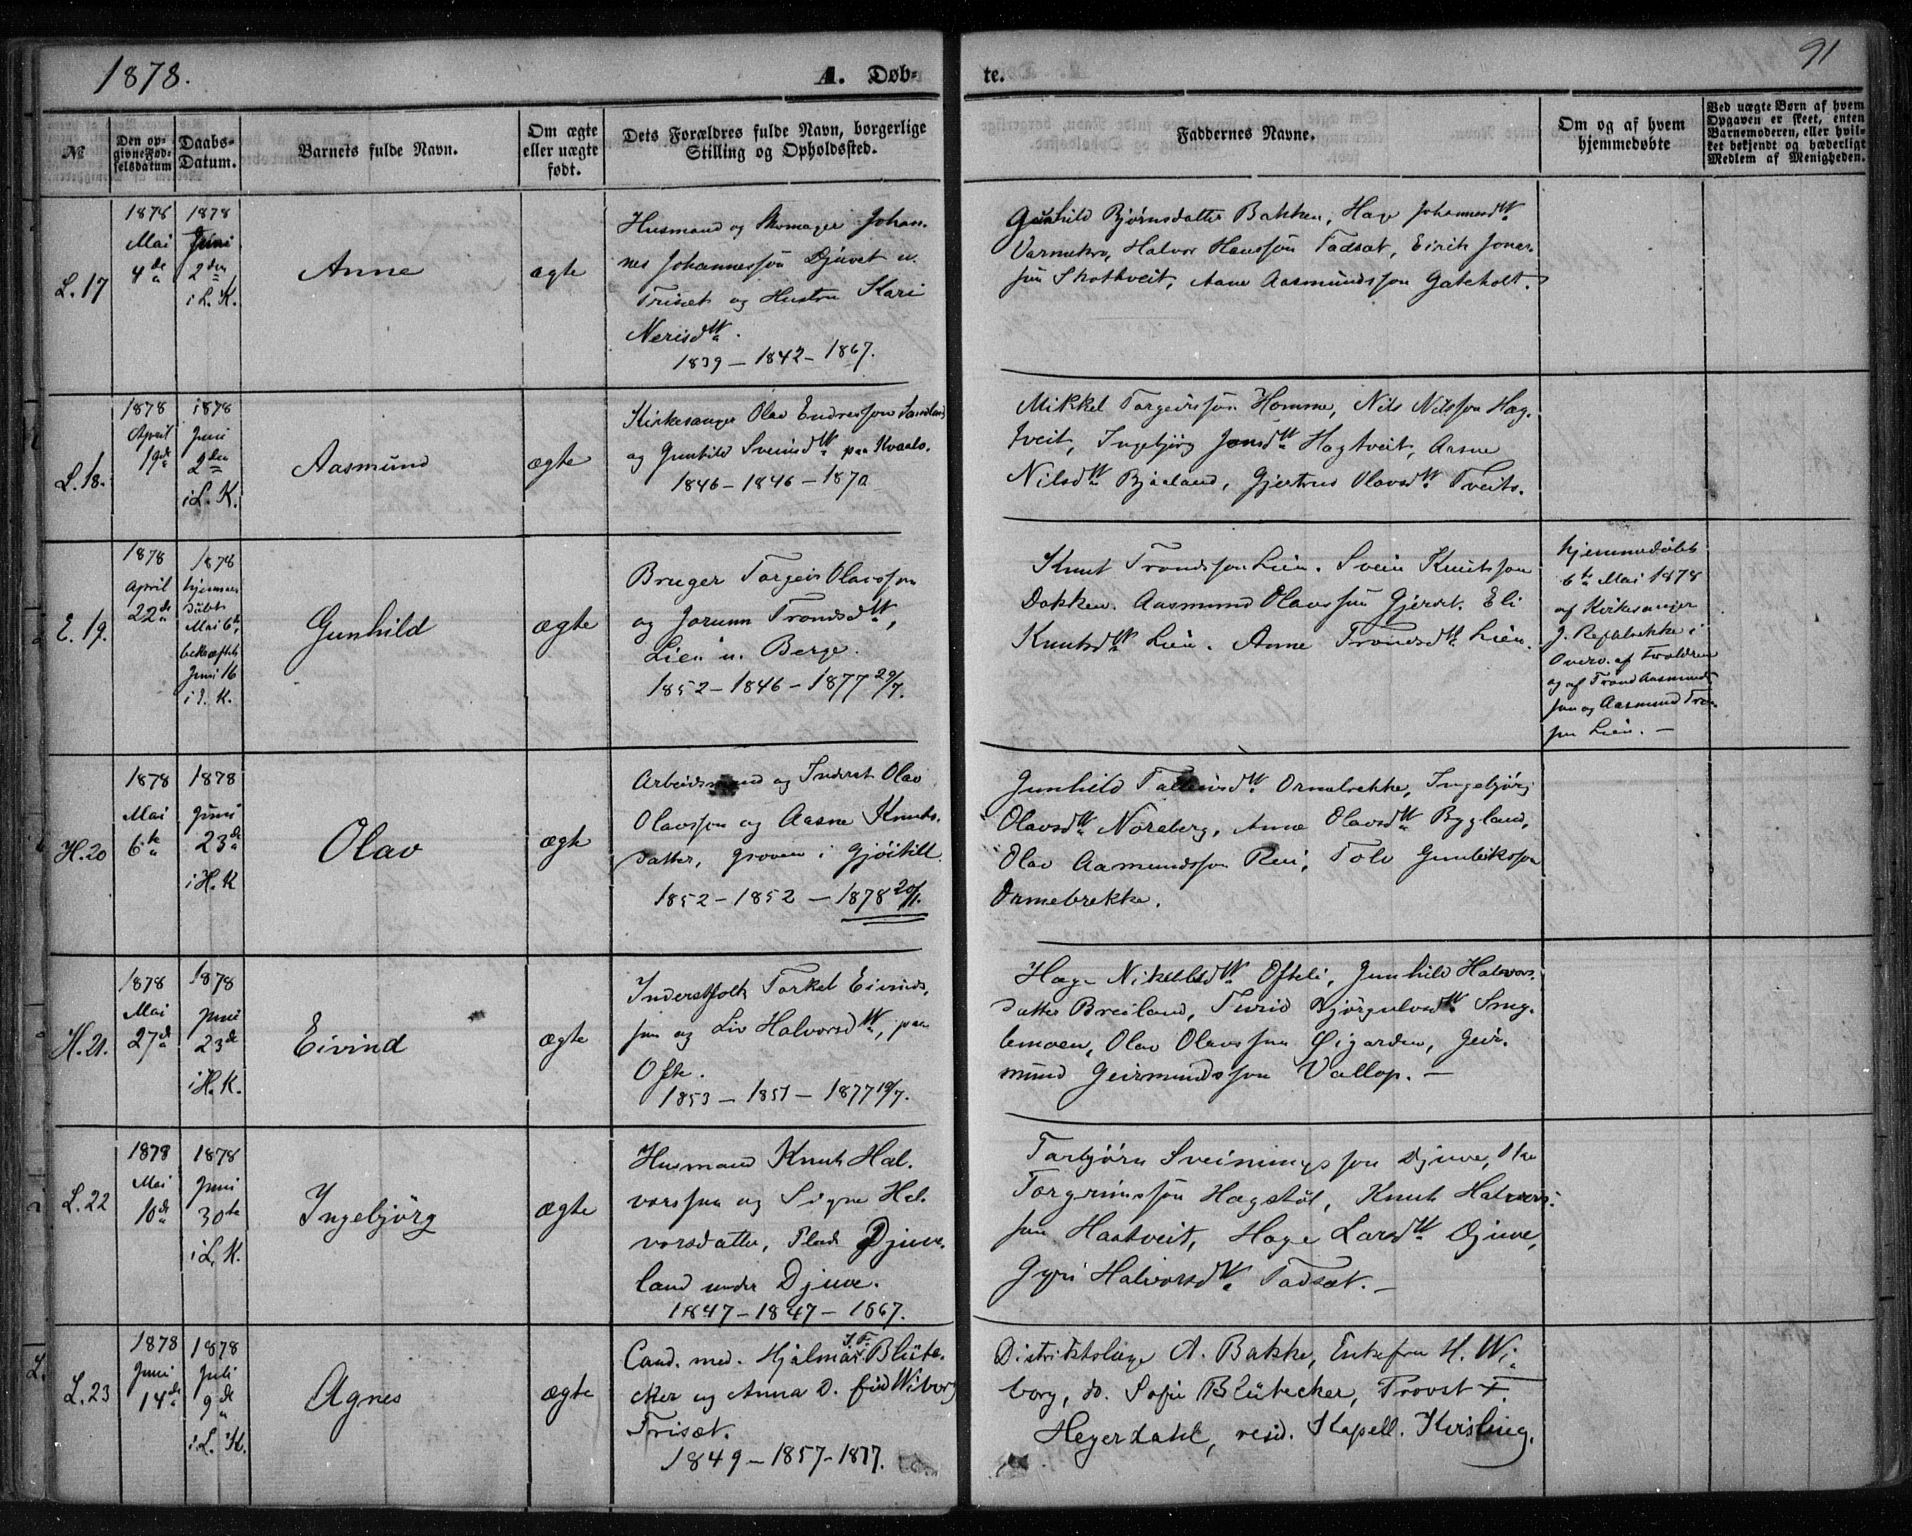 1878.
A. Døb-
te.
91
№
Den op-
givne Fød-
selsdatum
Daabs-
Datum.
Barnets fulde Navn.
Om ægte
eller uægte
født.
Dets Forældres fulde Navn, borgerlige
Stilling og Opholdssted.
Faddernes Navne.
Om og af hvem
hjemmedøbte
Ved uægte Børn af hvem
Opgaven er skeet, enten
Barnemoderen, eller hvil-
ket bekjendt og hæderligt
Medlem af Menigheden.
L. 17
1878
Mai
4de
1878
Juni
2den
i L. K.
Anne
ægte
Husmand og Skomager Johan-
nes Johannessøn Djuvet u.
Triset og Hustru Kari
Nerisdtr.
1839 – 1842 – 1867.
Gunhild Bjørnsdatter Bakken, Hage Johannesdtr
Halvor Hanssøn Tadsæt, Eirik Jons-
søn Skothveit, Aane Aasmundssøn Gateholt.
L. 18.
1878
April
19de
1878
Juni
2den
i L. K.
Aasmund
ægte
Kirkesanger Olav Endressøn
og Gunhild Sveinsdtr paa Kvaale.
1846 – 1846 – 1870
Mikkel Torgeirssøn Homme, Nils Nilssøn Hag-
tveit, Ingebjørg Jonsdtr Hagtveit, Aasne
Nilsdtr Bjaaland, Gjertrud Olavsdtr Tveito.
E. 19.
1878
April
22de
1878
hjemme
døbt
Mai 6te,
bekræftet
Juni 16
i E. K.
Gunhild
ægte
Bruger Torgeir Olavssøn
og Jorunn Trondsdtr,
Lien u. Berge.
1852 – 1846 – 1877 29/7.
Knut Trondssøn Lien. Svein Knutssøn
Dokken. Aasmund Olavssøn Gjerdet. Eli
Knutsdtr Lien. Anne Trondsdtr Lien.
hjemmedøbt
6te Mai 1878
af Kirkesanger
J. i
Overv. af Forældrene
og af Trond Aasmunds-
søn og Aasmund Tron-
søn Lien. –
H. 20
1878
Mai
6te
1878
Juni
23de
i H. K
Olav
ægte
Arbeidsmand og Inderst Olav
Olavssøn og Aasne Knuts-
datter, Groven i Gjøitill
1852 – 1852 – 1878 20/1.
Gunhild Ormebrekke, Ingebjørg
Olavsdtr Noreberg, Anne Olavsdtr Bygland,
Olav Aamundssøn Rui, Tolv Gunleikssøn
Ormebrekke.
H. 21.
1878
Mai
27de
1878
Juni
23de
i H. K.
Eivind
ægte
Inderstfolk Torkel Eivinds-
søn og Liv Halvorsdtr, paa
Ofte.
1853 – 1851 – 1877 19/7.
Hæge Ofteli, Gunhild Halvors-
datter Breiland, Turid Bjørgulvsdtr Smø-
lemoen, Olav Olavssøn Øigarden, Geir-
mund Geirmundssøn Vallop. –
L. 22
1878
Mai
10de
1878
Juni
30te
i L. K.
Ingebjörg
ægte
Husmand Knut Hal-
vorssøn og Signe Hal-
vorsdatter, Plads Djuve-
land under Djuve.
1847 – 1847 – 1867.
Torbjørn Sveinungssøn Djuve,
Torgrimssøn Hagstøl, Knut Halvors-
søn Haatveit, Hage Larsdtr Djuve,
Gyri Halvorsdtr Tadsæt. –
L. 23
1878
Juni
14de
1878
Juli
9de
i L. K.
Agnes
ægte
Cand. med. Hjalmar Blüte-
cker og Anna D. fød Wiborg
Trisæt.
1849 – 1857 – 1877.
Distriktslæge A. Bakke, Enkefru H. Wi-
borg, do. Sofie Blütecker, Provst
Heyerdahl, resid. Kapell. Kisling.